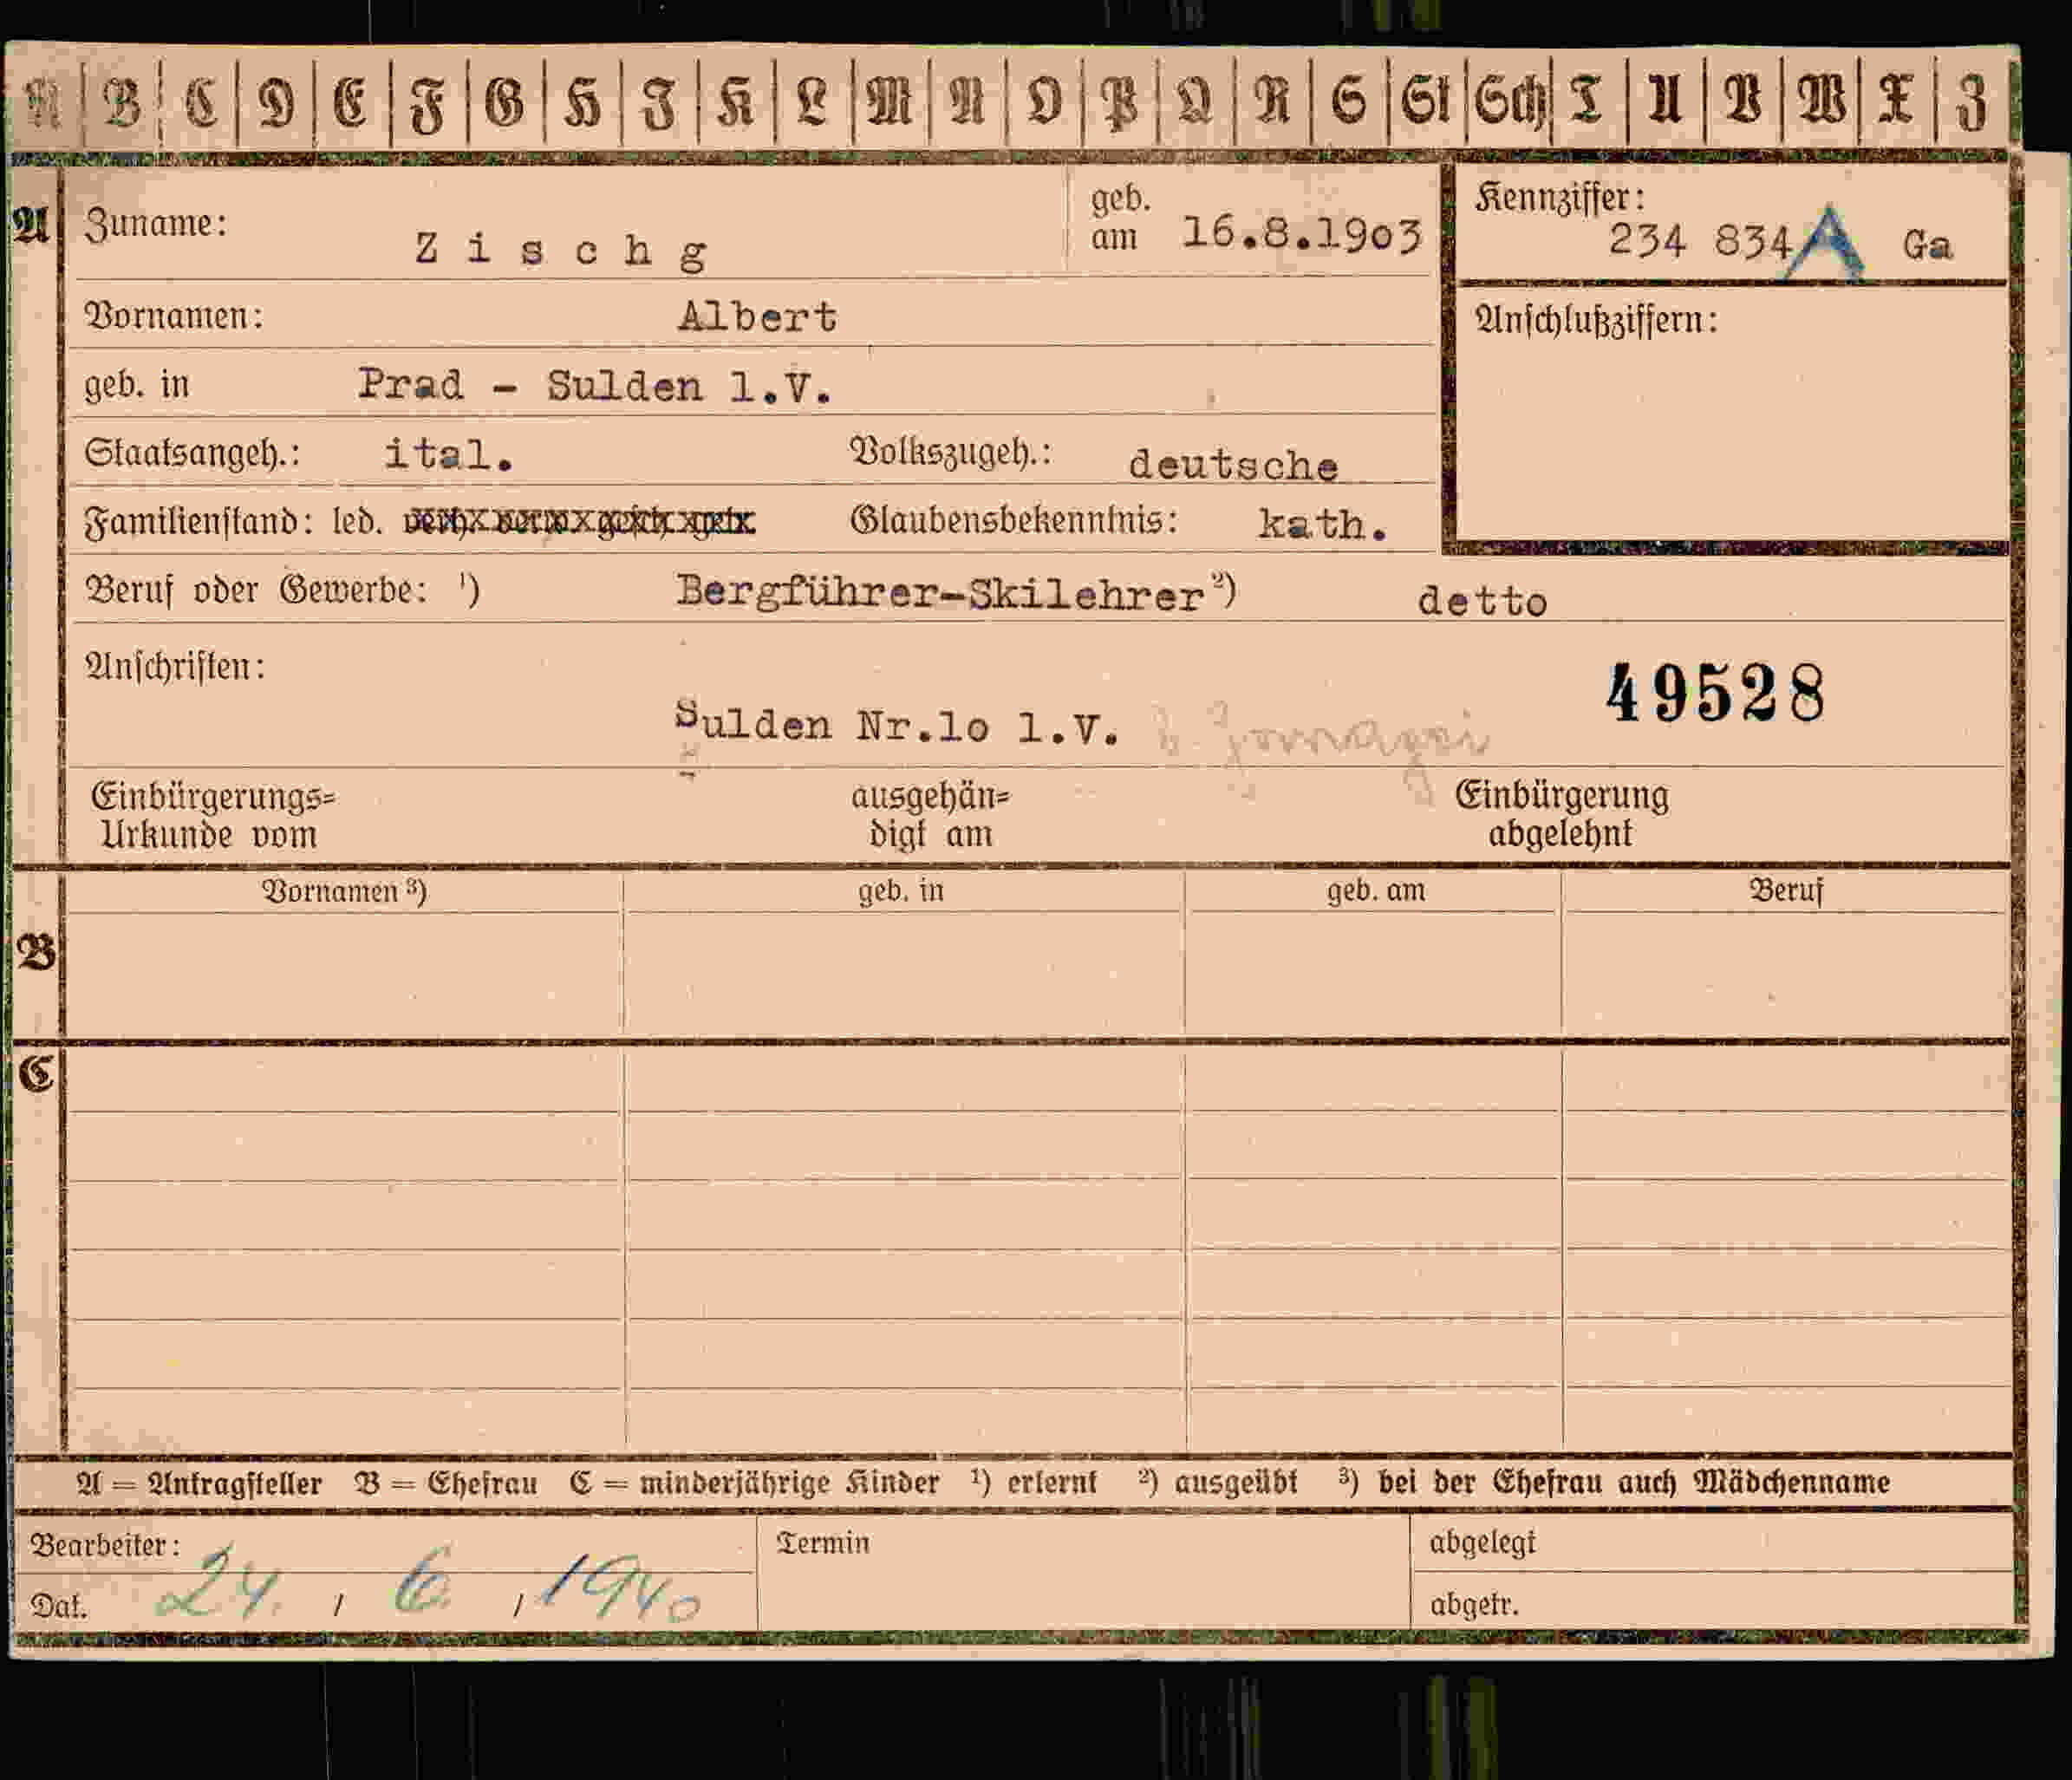 A B C D E F G H I K L M N O P Q R S St Sch T U V W X Z
A Zuname: Zischg geb. am 16.8.1903 Kennziffer: 234 834 A Ga
Vornamen: Albert Anschlußziffern:
geb. in Prad - Sulden l.V.
Staatsangeh.: ital. Volkszugeh.: deutsche
Familienstand: led. Glaubensbekenntnis: kath.
Beruf oder Gewerbe: ¹) Bergführer-Skilehrer ²) detto
Anschriften: 49528
Sulden Nr.lo l.V.
Einbürgerungs= ausgehän= Einbürgerung
Urkunde vom digt am abgelehnt
Vornamen ³) geb. in geb. am Beruf
B
C
A = Antragsteller B = Ehefrau C = minderjährige Kinder ¹) erlernt ²) ausgeübt ³) bei der Ehefrau auch Mädchenname
Bearbeiter: Termin abgelegt
Dat. 24. / 6. / 1940 abgetr.